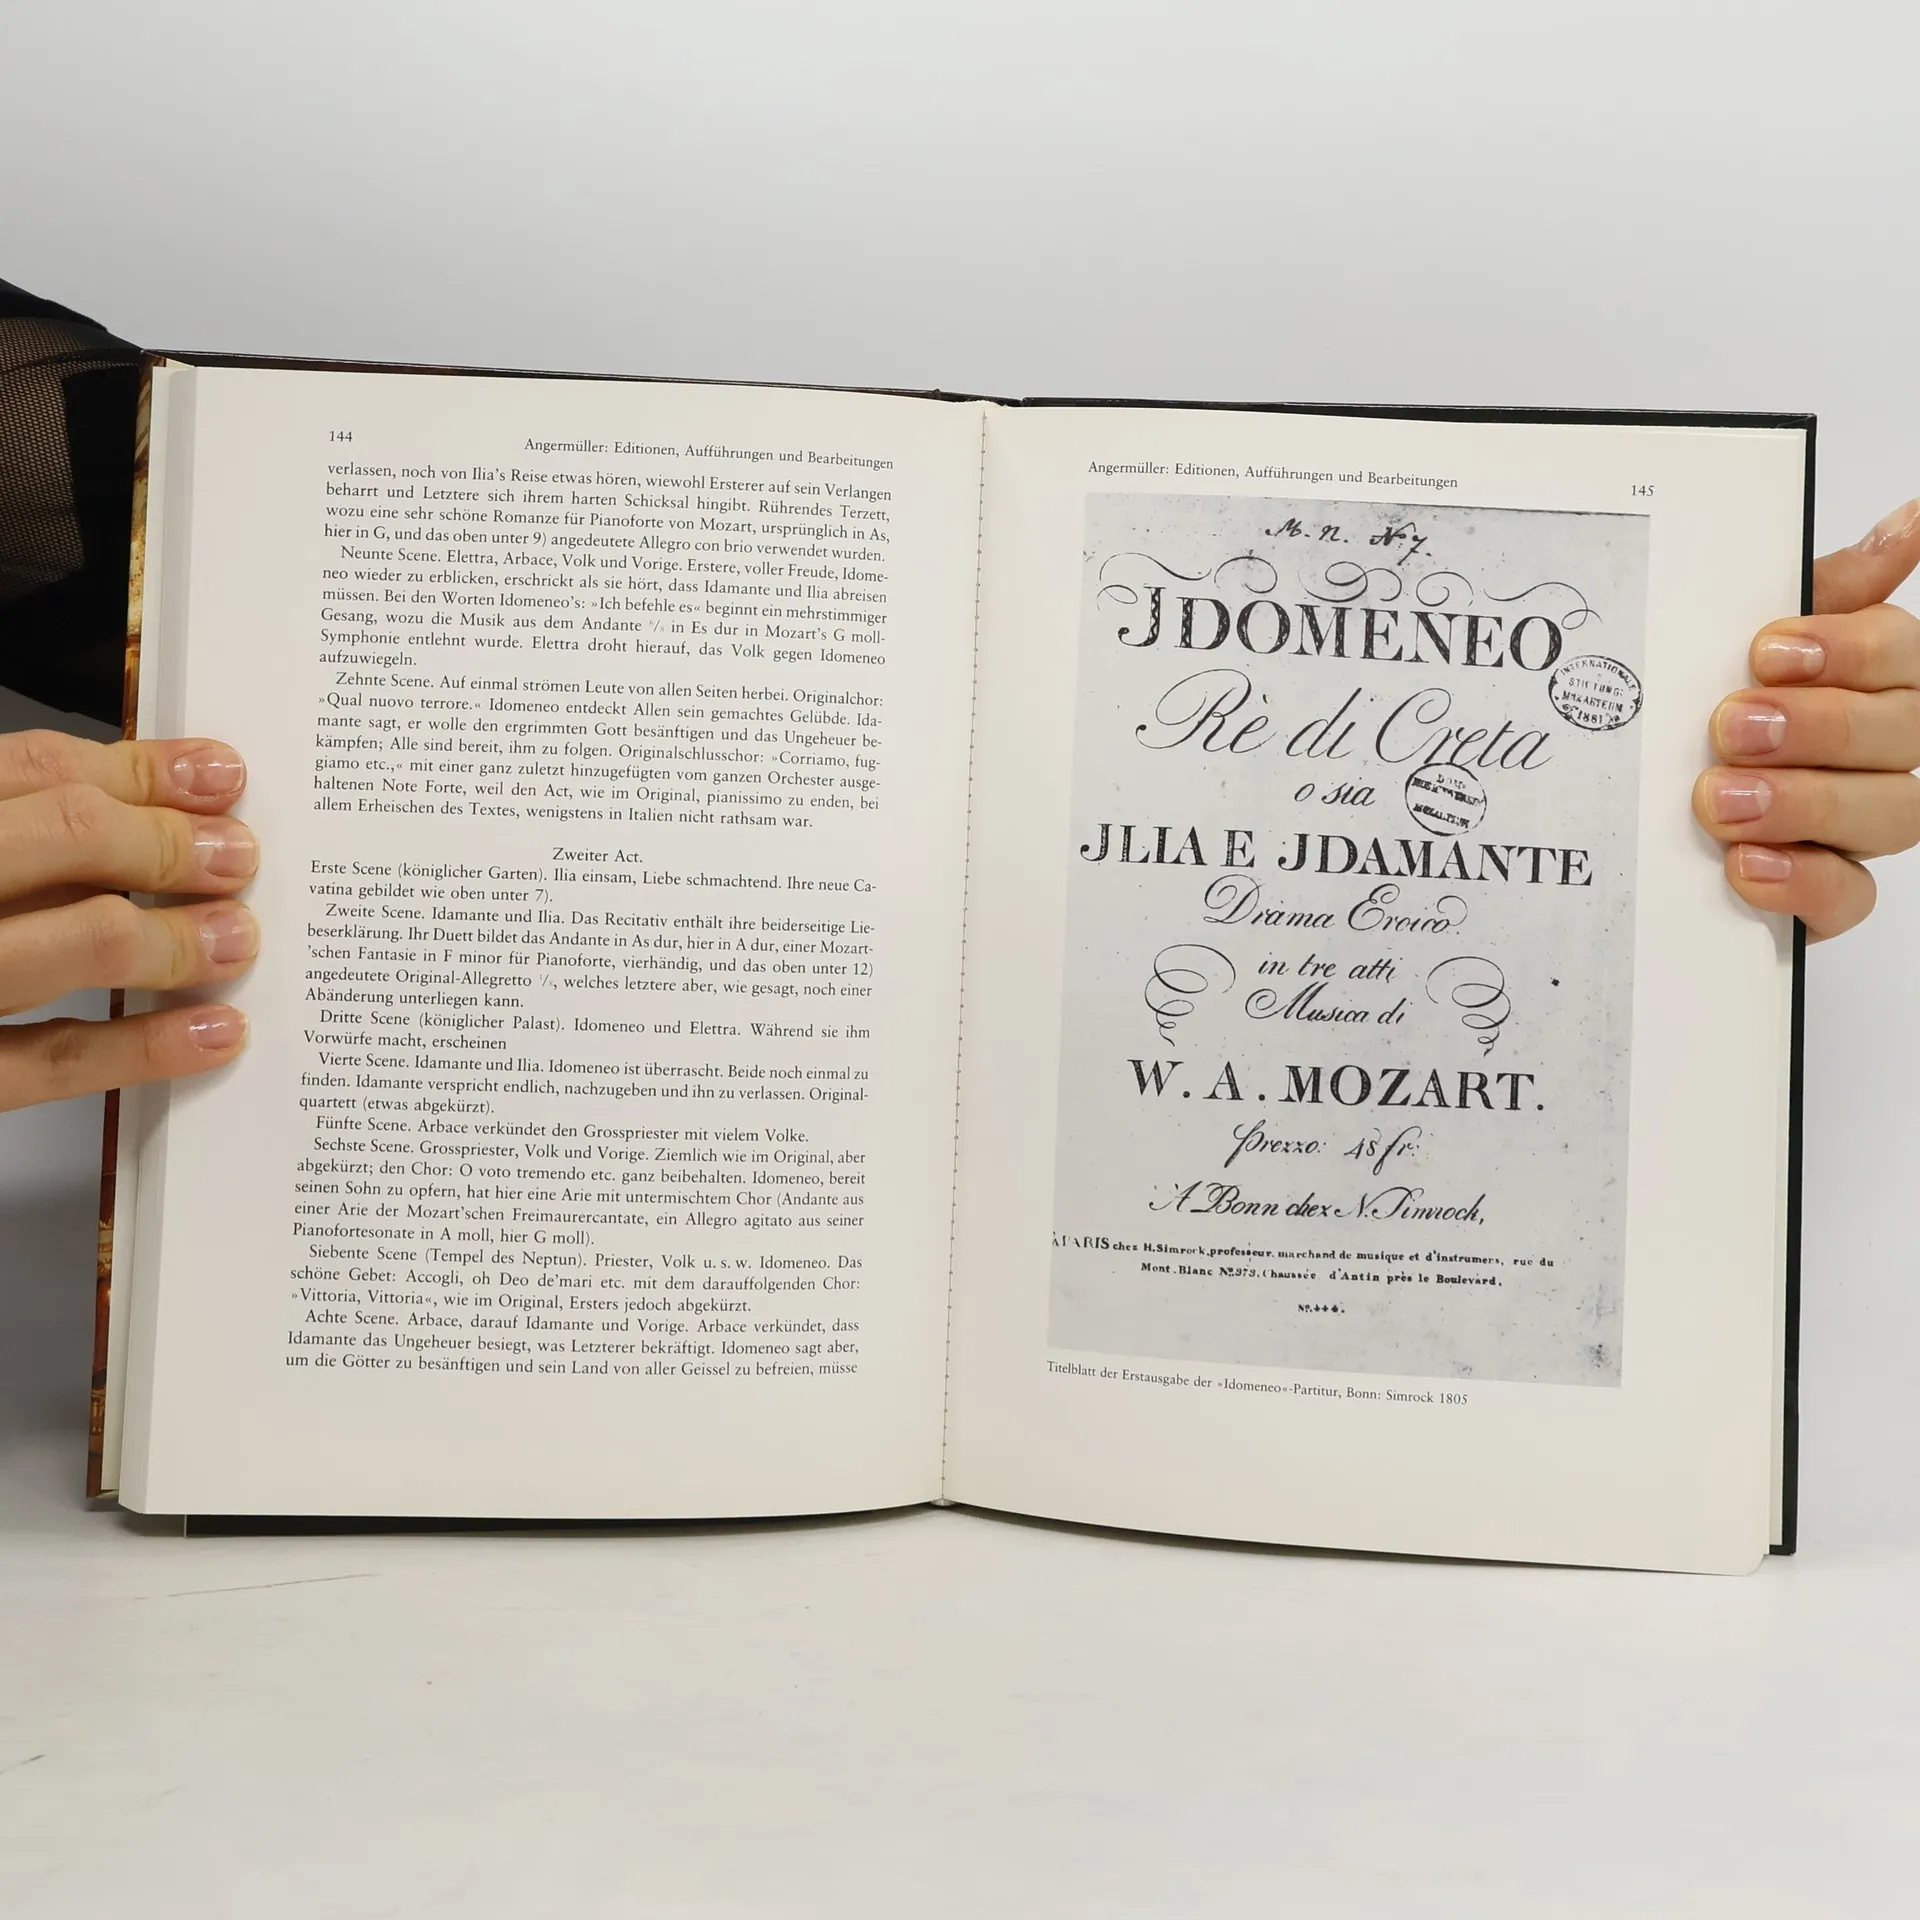 144
Angermüller: Editionen, Aufführungen und Bearbeitungen
verlassen, noch von Ilia's Reise etwas hören, wiewohl Ersterer auf sein Verlangen
beharrt und Letztere sich ihrem harten Schicksal hingibt. Rührendes Terzett,
wozu eine sehr schöne Romanze für Pianoforte von Mozart, ursprünglich in As,
hier in G, und das oben unter 9) angedeutete Allegro con brio verwendet wurden.
Neunte Scene. Elettra, Arbace, Volk und Vorige. Erstere, voller Freude, Idome-
neo wieder zu erblicken, erschrickt als sie hört, dass Idamante und Ilia abreisen
müssen. Bei den Worten Idomeneo's: »Ich befehle es« beginnt ein mehrstimmiger
Gesang, wozu die Musik aus dem Andante 6/8 in Es dur in Mozart's G moll-
Symphonie entlehnt wurde. Elettra droht hierauf, das Volk gegen Idomeneo
aufzuwiegeln.
Zehnte Scene. Auf einmal strömen Leute von allen Seiten herbei. Originalchor:
»Qual nuovo terrore.« Idomeneo entdeckt Allen sein gemachtes Gelübde. Ida-
mante sagt, er wolle den ergrimmten Gott besänftigen und das Ungeheuer be-
kämpfen; Alle sind bereit, ihm zu folgen. Originalschlusschor: »Corriamo, fug-
giamo etc.,« mit einer ganz zuletzt hinzugefügten vom ganzen Orchester ausge-
haltenen Note Forte, weil den Act, wie im Original, pianissimo zu enden, bei
allem Erheischen des Textes, wenigstens in Italien nicht rathsam war.
Zweiter Act.
Erste Scene (königlicher Garten). Ilia einsam, Liebe schmachtend. Ihre neue Ca-
vatina gebildet wie oben unter 7).
Zweite Scene. Idamante und Ilia. Das Recitativ enthält ihre beiderseitige Lie-
beserklärung. Ihr Duett bildet das Andante in As dur, hier in A dur, einer Mozart-
'schen Fantasie in F minor für Pianoforte, vierhändig, und das oben unter 12)
angedeutete Original-Allegretto, welches letztere aber, wie gesagt, noch einer
Abänderung unterliegen kann.
Dritte Scene (königlicher Palast). Idomeneo und Elettra. Während sie ihm
Vorwürfe macht, erscheinen
Vierte Scene. Idamante und Ilia. Idomeneo ist überrascht. Beide noch einmal zu
finden. Idamante verspricht endlich, nachzugeben und ihn zu verlassen. Original-
quartett (etwas abgekürzt).
Fünfte Scene. Arbace verkündet den Grosspriester mit vielem Volke.
Sechste Scene. Grosspriester, Volk und Vorige. Ziemlich wie im Original, aber
abgekürzt; den Chor: O voto tremendo etc. ganz beibehalten. Idomeneo, bereit
seinen Sohn zu opfern, hat hier eine Arie mit untermischtem Chor (Andante aus
einer Arie der Mozart'schen Freimaurercantate, ein Allegro agitato aus seiner
Pianofortesonate in A moll, hier G moll).
Siebente Scene (Tempel des Neptun). Priester, Volk u. s. w. Idomeneo. Das
schöne Gebet: Accogli, oh Deo de'mari etc. mit dem darauffolgenden Chor:
»Vittoria, Vittoria«, wie im Original, Ersters jedoch abgekürzt.
Achte Scene. Arbace, darauf Idamante und Vorige. Arbace verkündet, dass
Idamante das Ungeheuer besiegt, was Letzterer bekräftigt. Idomeneo sagt aber,
um die Götter zu besänftigen und sein Land von aller Geissel zu befreien, müsse
Angermüller: Editionen, Aufführungen und Bearbeitungen
145
M. N. No 7.
JDOMENEO
INTERNATIONALE
STIFTUNG:
MOZARTEUM
1881
Rè di Creta
o sia
JLIA E JDAMANTE
Drama Eroico
in tre atti
Musica di
W. A. MOZART.
Prezzo: 48 fr:
A Bonn chez N. Simrock,
A PARIS chez H. Simrock, professeur, marchand de musique et d'instrumens, rue du
Mont-Blanc No. 373, Chaussée d'Antin près le Boulevard.
No. 444.
Titelblatt der Erstausgabe der »Idomeneo«-Partitur, Bonn: Simrock 1805